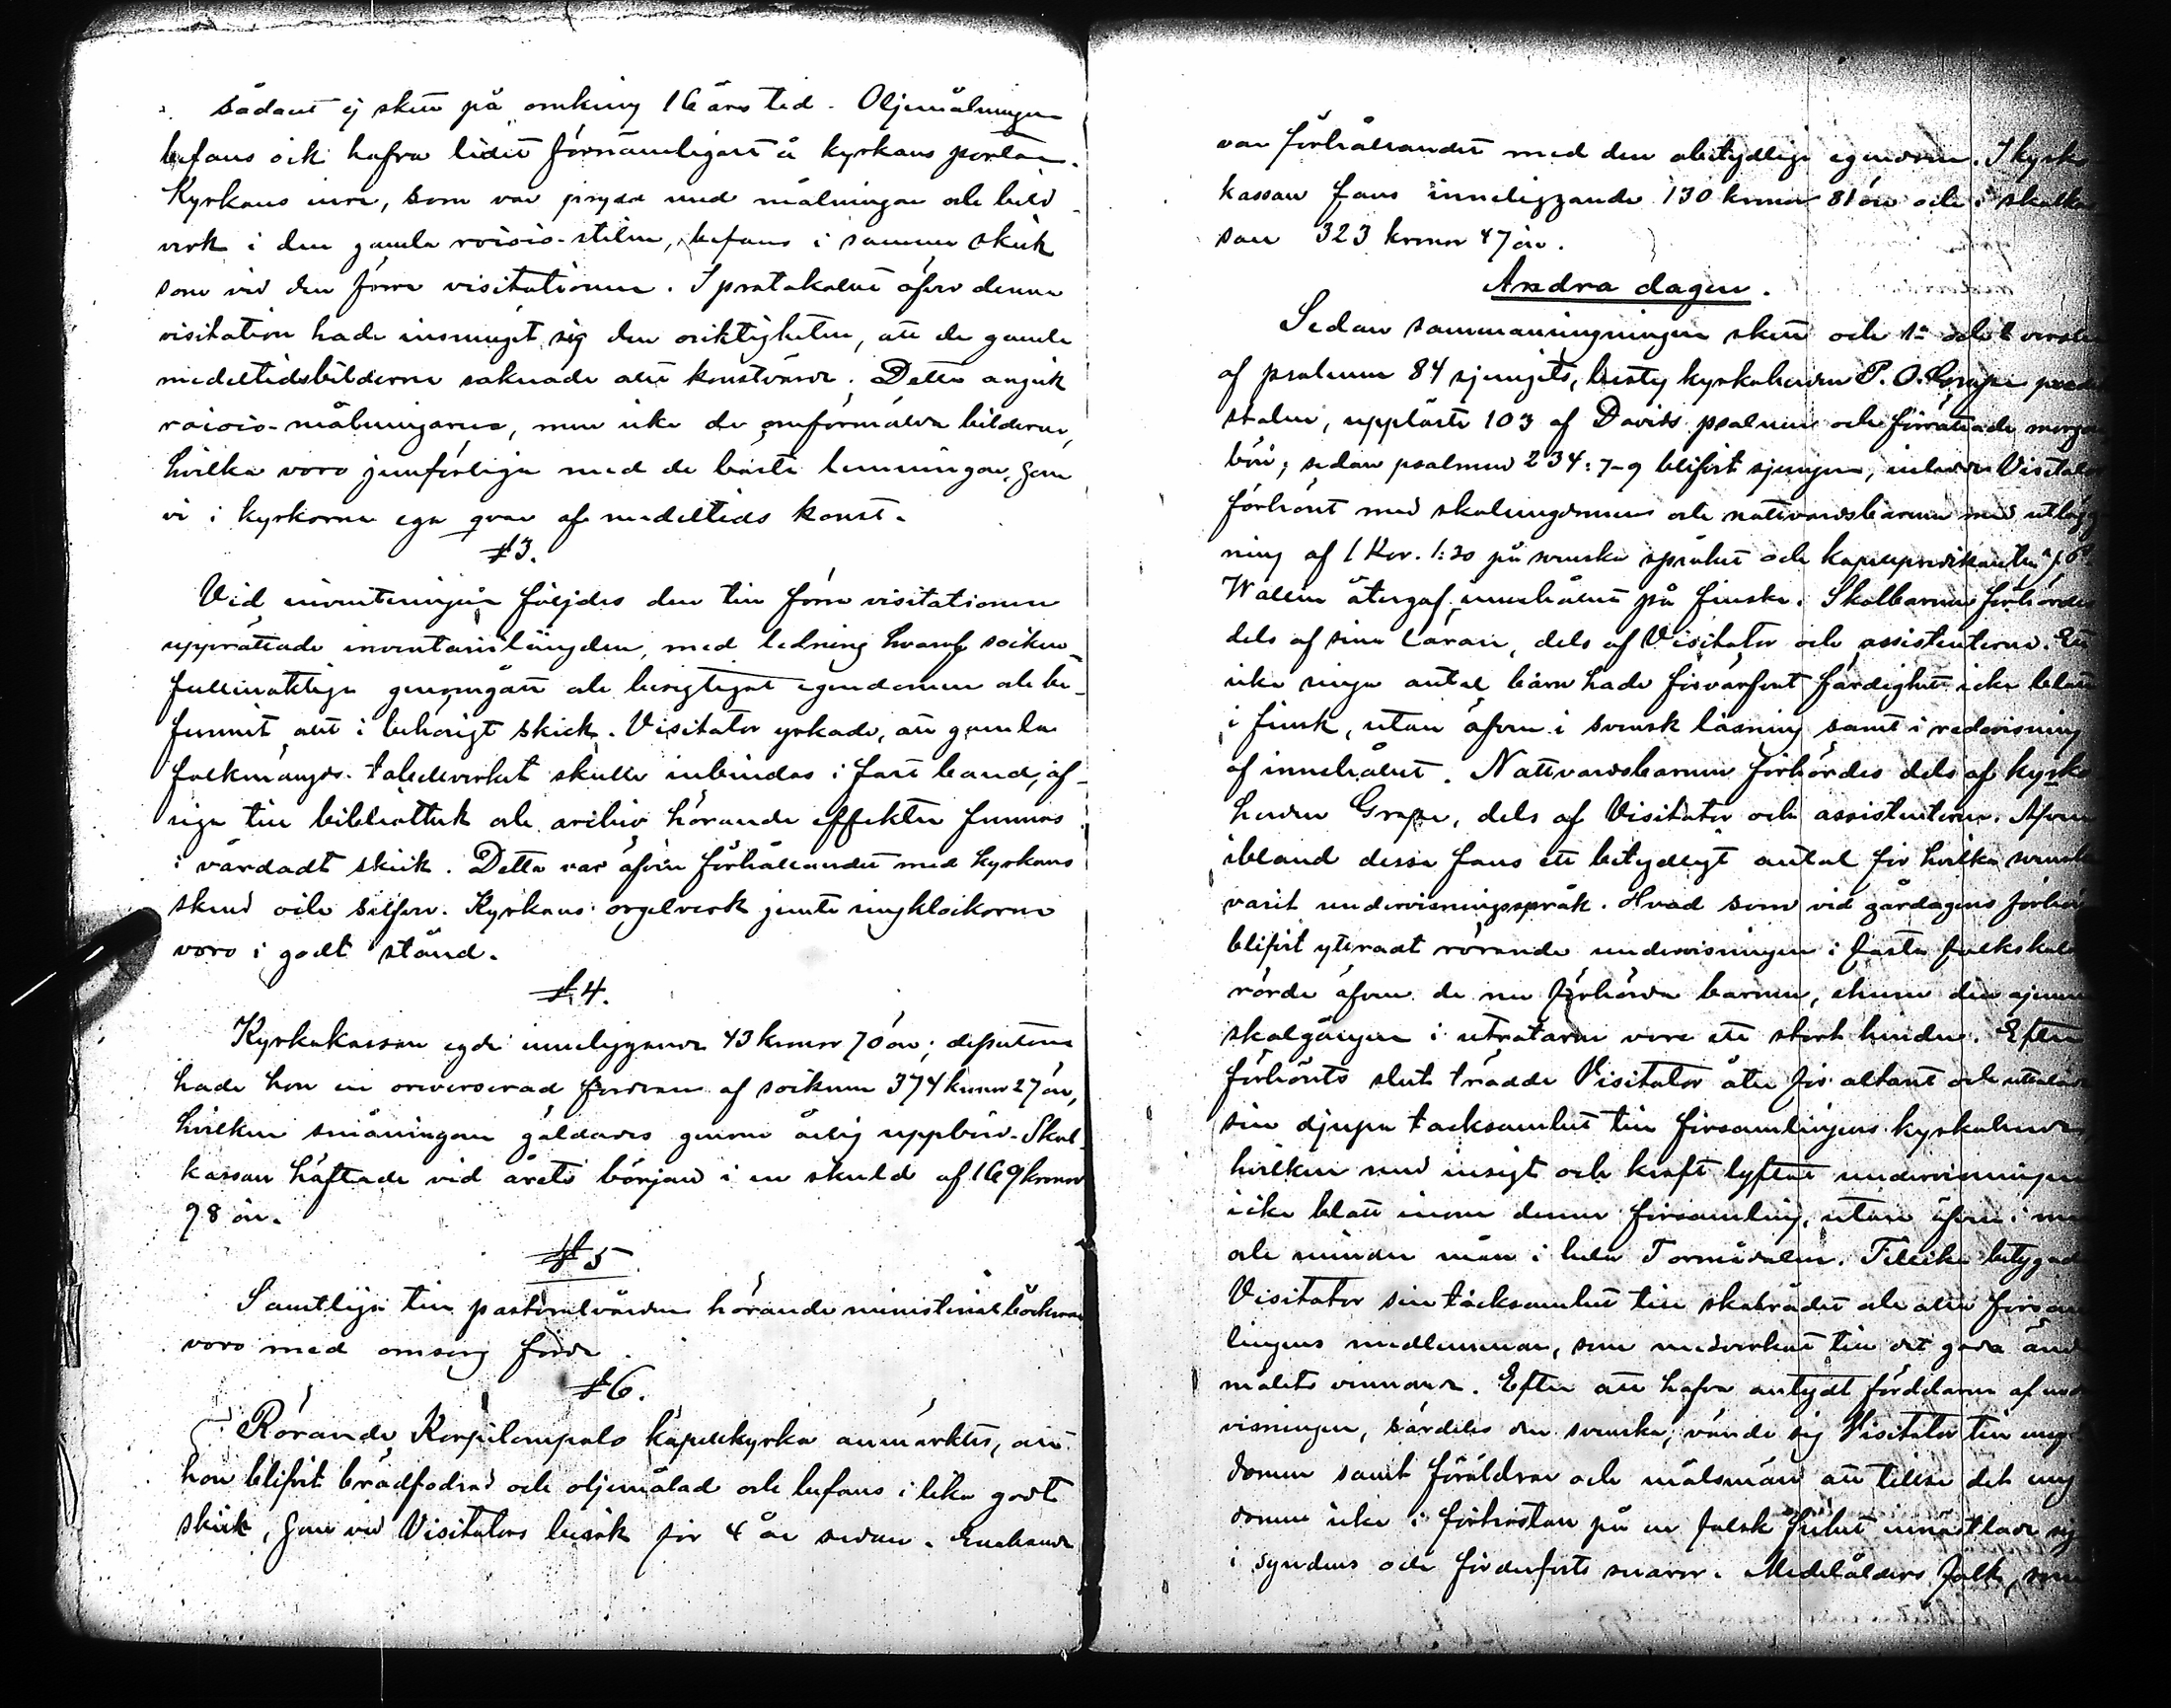 sådant ej skett på omkring 16 års tid. Oljemålningen
befans ock hafva lidit förnämligast å kyrkans portar.
Kyrkans inre, som var prydd med målningar och bild
verk i den gamla rococo-stilen, befans i samma skick
som vid den förra visitationen. I protokollet öfver denna
visitation hade insmugit sig den oriktigheten, att de gamla
medeltidsbilderna saknade allt konstvärde. Detta angick
rococo-målningarna, men icke de omförmälda bilderna,
hvilka voro jemförliga med de bästa lemningar, som
vi i kyrkorna ega qvar af medeltids konst.
§3.
Vid inventeringen följdes den till förra visitationen
upprättade inventarielängden, med ledning hvaraf socken-
fullmäktige genomgått och besigtigat egendomen och be-
funnit allt i behörigt skick. Visitator yrkade, att gamla
folkmängds-tabellverket skulle inbindas i fast band; öf-
riga till bibliothek och archiv hörande effekter funnos
i vårdadt skick. Detta var äfven förhållandet med kyrkans
skrud och silfver. Kyrkans orgelverk jemte ringklockorna
voro i godt stånd.
§4.
Kyrkokassan egde inneliggande 43 kronor 70 öre; dessutom
hade hon en oreverserad fordran af socknen 374 kronor 27 öre,
hvilken småningom gäldades genom årlig uppbörd. Skol-
kassan häftade vid årets början i en skuld af 169 kronor
98 öre.
§5
Samtliga till pastoralvården hörande ministerialböckerna
voro med omsorg förda.
§6.
Rörande Korpilompolo kapellkyrka anmärktes, att
hon blifvit brädfodrad och oljemålad och befans i lika godt
skick, som vid Visitators besök för 4 år sedan. Enahanda
var förhållandet med den obetydliga egendomen. I kyrko
kassan fans inneliggande 130 kronor 81 öre och i skolkas
san 323 kronor 47 öre.
Andra dagen.
Sedan sammanringningen skett och 1a och verserna
af psalmen 84 sjungits, besteg kyrkoherden P. O. Grape predik
stolen, uppläste 103 af Davids psalmer och förrättade morgon
bön; sedan psalmen 234: 7-9 blifvit sjungen, inledde Visitator
förhöret med skolungdomen och nattvardsbarnen med utlägg
ning af 1 Kor. 1:30 på svenska språket och kapellpredikanten
Wallin återgaf innehållet på finska. Skolbarnen förhördes
dels af sina lärare, dels af Visitator och assistenterna. Ett
icke ringa antal barn hade förvärfvat färdighet icke blott
i finsk, utan äfven i svensk läsning samt i redovisning
af innehållet. Nattvardsbarnen förhördes dels af kyrko
herden Grape, dels af Visitator och assistenterna. Äfven
ibland dessa fans ett betydligt antal för hvilka svenska
varit undervisningsspråk. Hvad som vid gårdagens förhör
blifvit yttradt rörande undervisningen i fasta folkskolan
rörde äfven de nu förhörda barnen, ehuru den ojemna
skolgången i utrotarna vore ett stort hinder. Efter
förhörets slut trädde Visitator åter för altaret och uttalade
sin djupa tacksamhet till församlingens kyrkoherde,
hvilken med insigt och kraft lyftat undervisningen
icke blott inom denna församling, utan äfven i mer
och mindre mån i hela Torneådalen. Tillika betygade
Visitator sin tacksamhet till skolrådet och alla försam
lingens medlemmar, som medverkat till det goda ända
målets vinnande. Efter att hafva antydt fördelarne af under
visningen, särdeles den svenska, vände sig Visitator till ung
domen samt föräldrar och målsmän att tillse det ung
domen icke i förhastan på en falsk frihet insnärjde sig
i syndens och förderfvets snaror. Medelålders folk, som